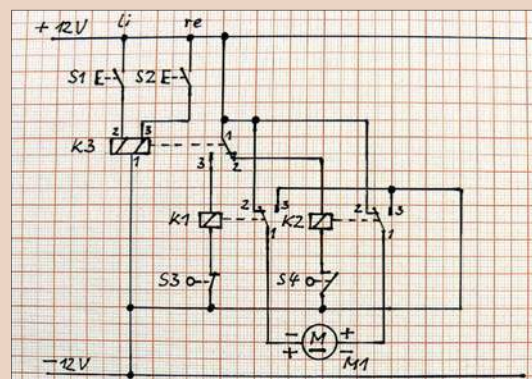 +12V li re
S1 E S2 E
2 3
K3 1
1
3 2
K1 2 3 K2 2 3
1 1
S3 S4
- M +
+ - M1
-12V